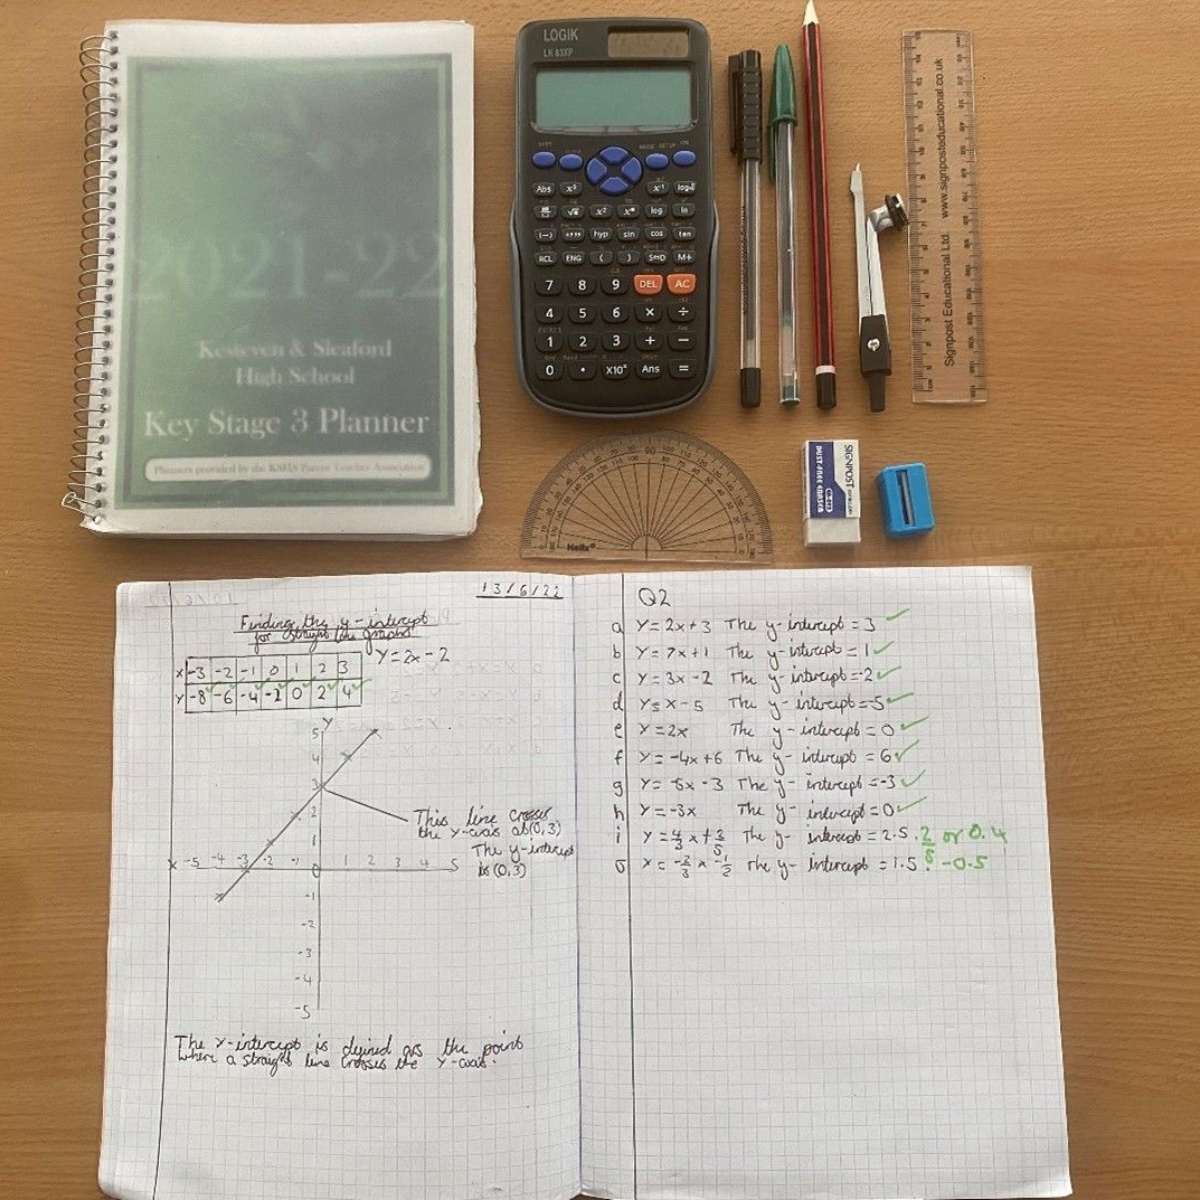 2021-22
Kesteven & Sleaford
High School
Key Stage 3 Planner
Planners provided by the KSHS Parent Teacher Association
LOGIK
LK 83XP
SHIFT
MODE SETUP ON
Abs x³ x⁻¹
x² log ln
(−) hyp sin cos tan
RCL ENG ( ) S⇔D M+
7 8 9 DEL AC
4 5 6 × ÷
1 2 3 + −
0 . X10ˣ Ans =
Signpost Educational Ltd. www.signposteducational.co.uk
Helix
90
SIGNPOST
DUST-FREE ERASER
13/6/22
Finding the y-intercept
for straight line graphs
X -3 -2 -1 0 1 2 3
Y -8 -6 -4 -2 0 2 4
Y=2x-2
Y
5
4
3
2
1
X -5 -4 -3 -2 -1 0 1 2 3 4 5
-1
-2
-3
-4
-5
This line crosses
the Y-axis at (0,3)
The y-intercept
is (0,3)
The Y-intercept is defined as the point
where a straight line crosses the Y-axis.
Q2
a Y=2x+3 The y-intercept = 3
b Y=7x+1 The y-intercept = 1
c Y=3x-2 The y-intercept =-2
d Y=x-5 The y-intercept =-5
e Y=2x The y-intercept = 0
f Y=-4x+6 The y-intercept = 6
g Y=-5x-3 The y-intercept =-3
h Y=-3x The y-intercept = 0
i Y=4/3x+2/5 The y-intercept = 2.5. 2/5 or 0.4
x=-2/3x-1/2 The y-intercept = 1.5 -0.5